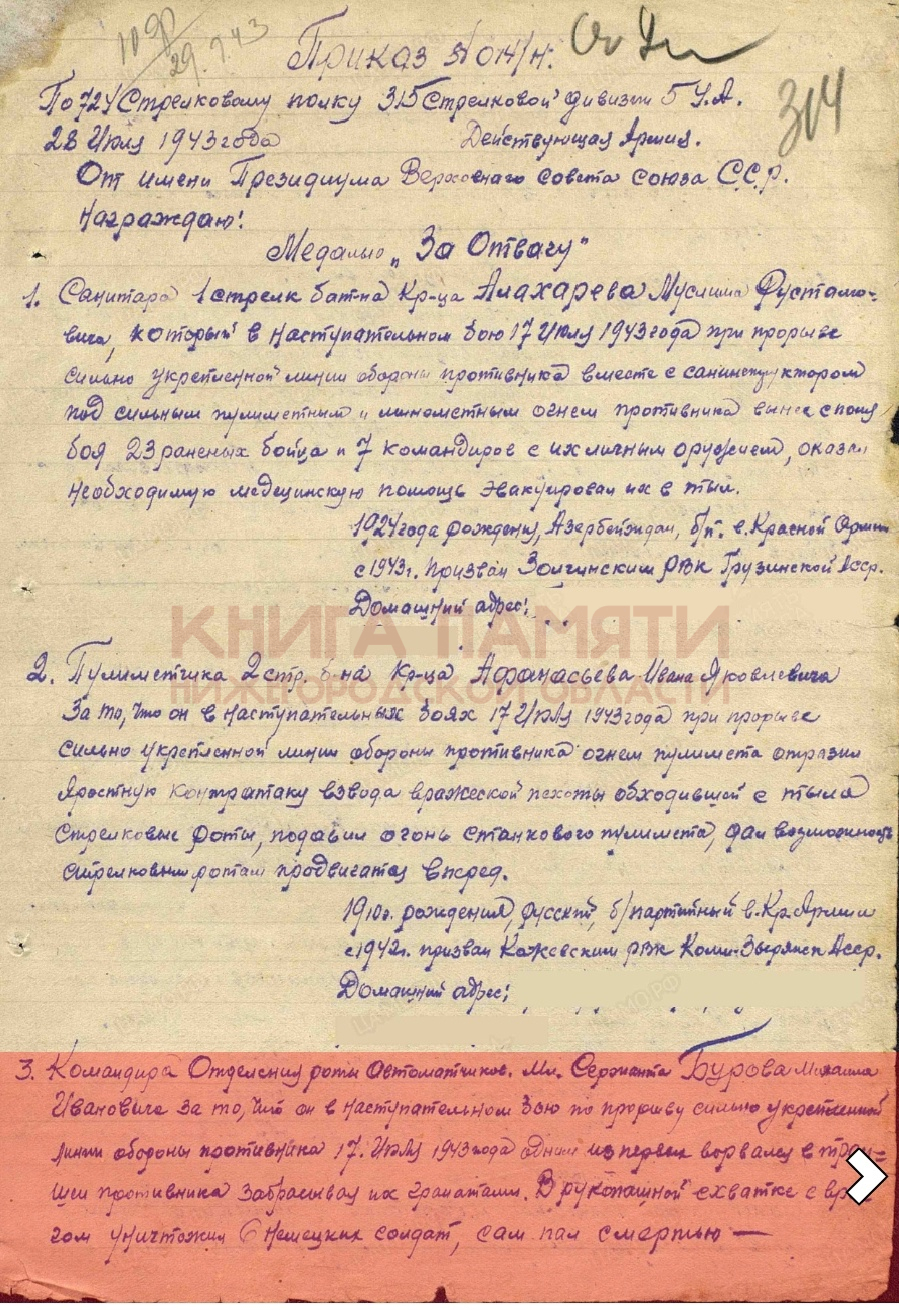 29.7.43
Приказ № 014/н.
314
По 724 Стрелковому полку 315 Стрелковой дивизии 5 У.А.
28 Июля 1943 года Действующая Армия.
От имени Президиума Верховного совета союза С.С.Р.
Награждаю!
Медалью „За Отвагу"
1. Санитара 1 стрелк бат-на Кр-ца Алахарева Муслима Рустамо-
вича, который в наступательном бою 17 Июля 1943 года при прорыве
сильно укрепленной линии обороны противника вместе с санинструктором
под сильным пулиметным и минометным огнем противника вынес с поля
боя 23 раненых бойца и 7 командиров с их личным оружием, оказал
необходимую медецинскую помощь эвакуировал их в тыл.
1924 года рождения, Азербейждан, б/п. в. Красной Армии
с 1943г. Призван РВК Грузинской Асср.
Домашний адрес:
КНИГА ПАМЯТИ
НИЖЕГОРОДСКОЙ ОБЛАСТИ
2. Пулиметчика 2 стр. б-на Кр-ца Афанасьева Ивана Яковлевича
За то, что он в наступательных боях 17 Июля 1943 года при прорыве
сильно укрепленной линии обороны противника огнем пулимета отразил
яростную контратаку взвода вражеской пехоты обходившей с тыла
стрелковые роты, подавил огонь станкового пулимета, дал возможность
стрелковым ротам продвигатся вперед.
1910г. рождения, русский, б/партийный в. Кр. Армии
с 1942г. призван РВК Коми-Зырянск Асср.
Домашний адрес:
3. Командира Отделения роты Автоматчиков. Мл. Сержанта Бурова Михаила
Ивановича за то, что он в наступательном бою по прорыву сильно укрепленной
линии обороны противника 17. Июля 1943 года одним из первых ворвался в тран-
шеи противника забрасывая их гранатами. В рукопашной схватке с вра-
гом уничтожил 6 немецких солдат, сам пал смертью —